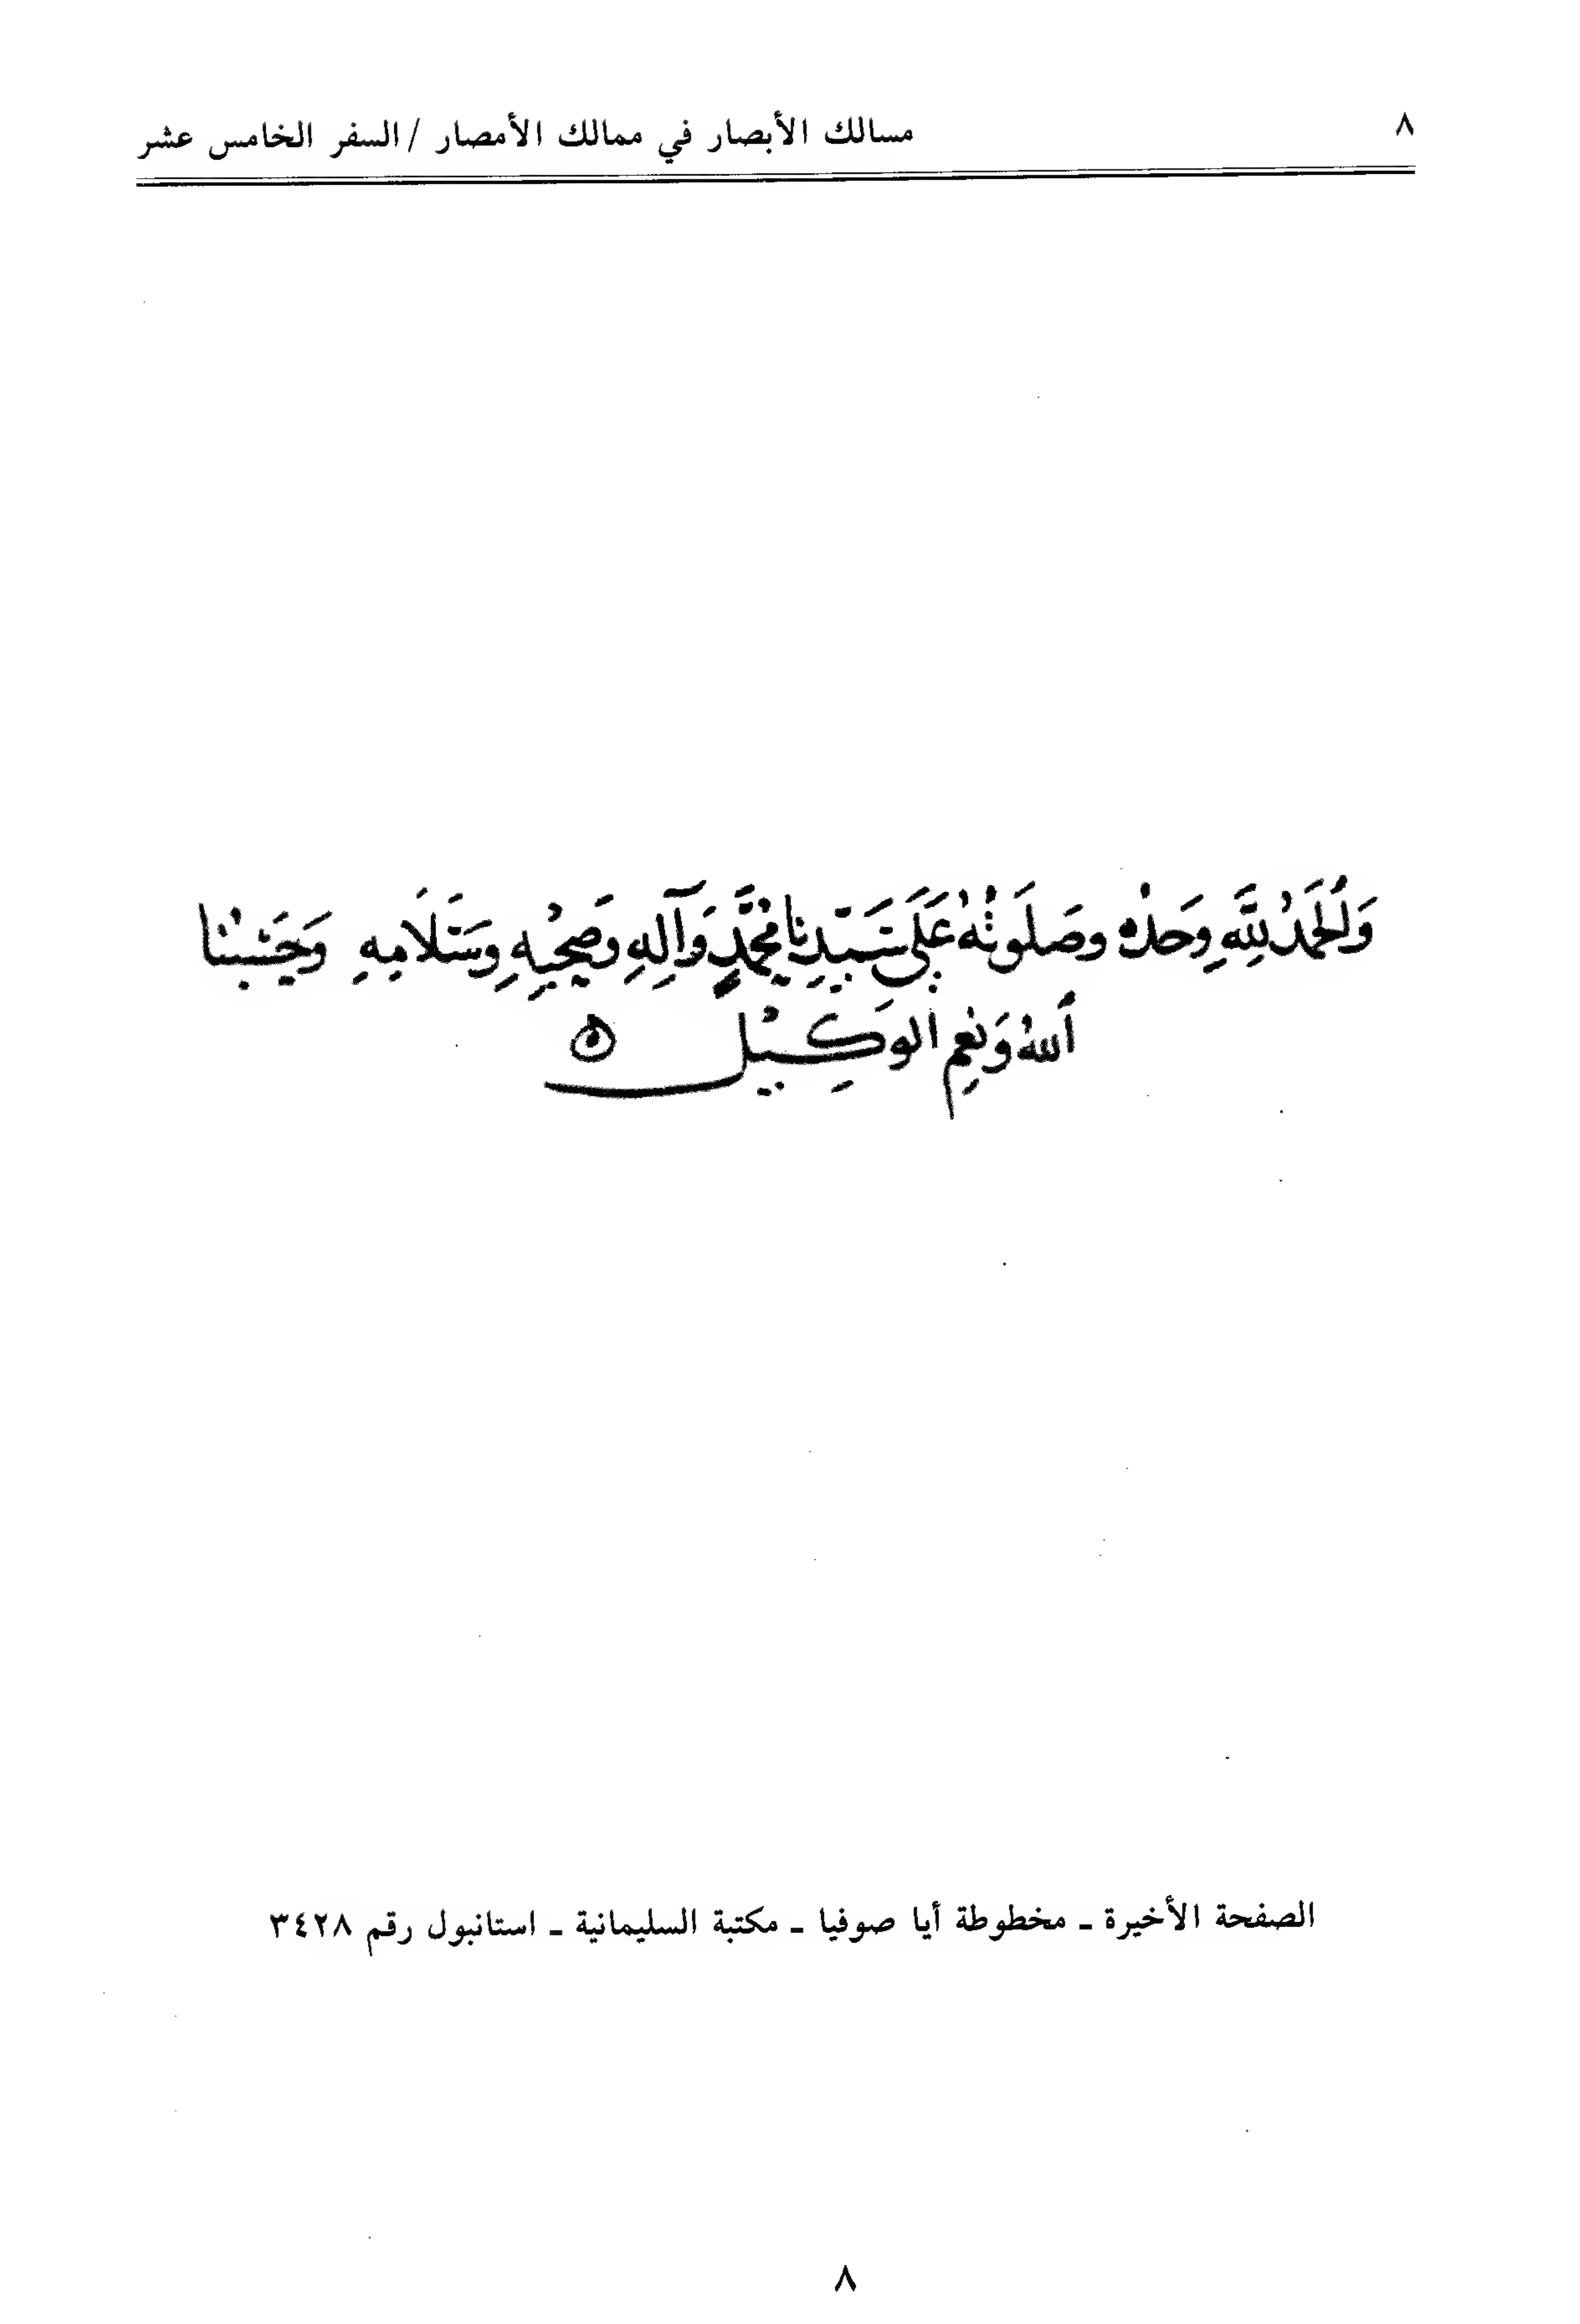 ٨
مسالك الأبصار في ممالك الأمصار / السفر الخامس عشر
وَٱلْحَمْدُ لِلَّهِ وَحْدَهُ وصَلَوتُهُ عَلَى سَيِّدِنَا مُحَمَّدٍ وَآلِهِ وَصَحْبِهِ وسَلَامِهِ وَحَسْبُنَا
ٱللهُ وَنِعْمَ الوَكِيْل ۞
الصفحة الأخيرة ـ مخطوطة أيا صوفيا ـ مكتبة السليمانية ـ استانبول رقم ٣٤٢٨
٨